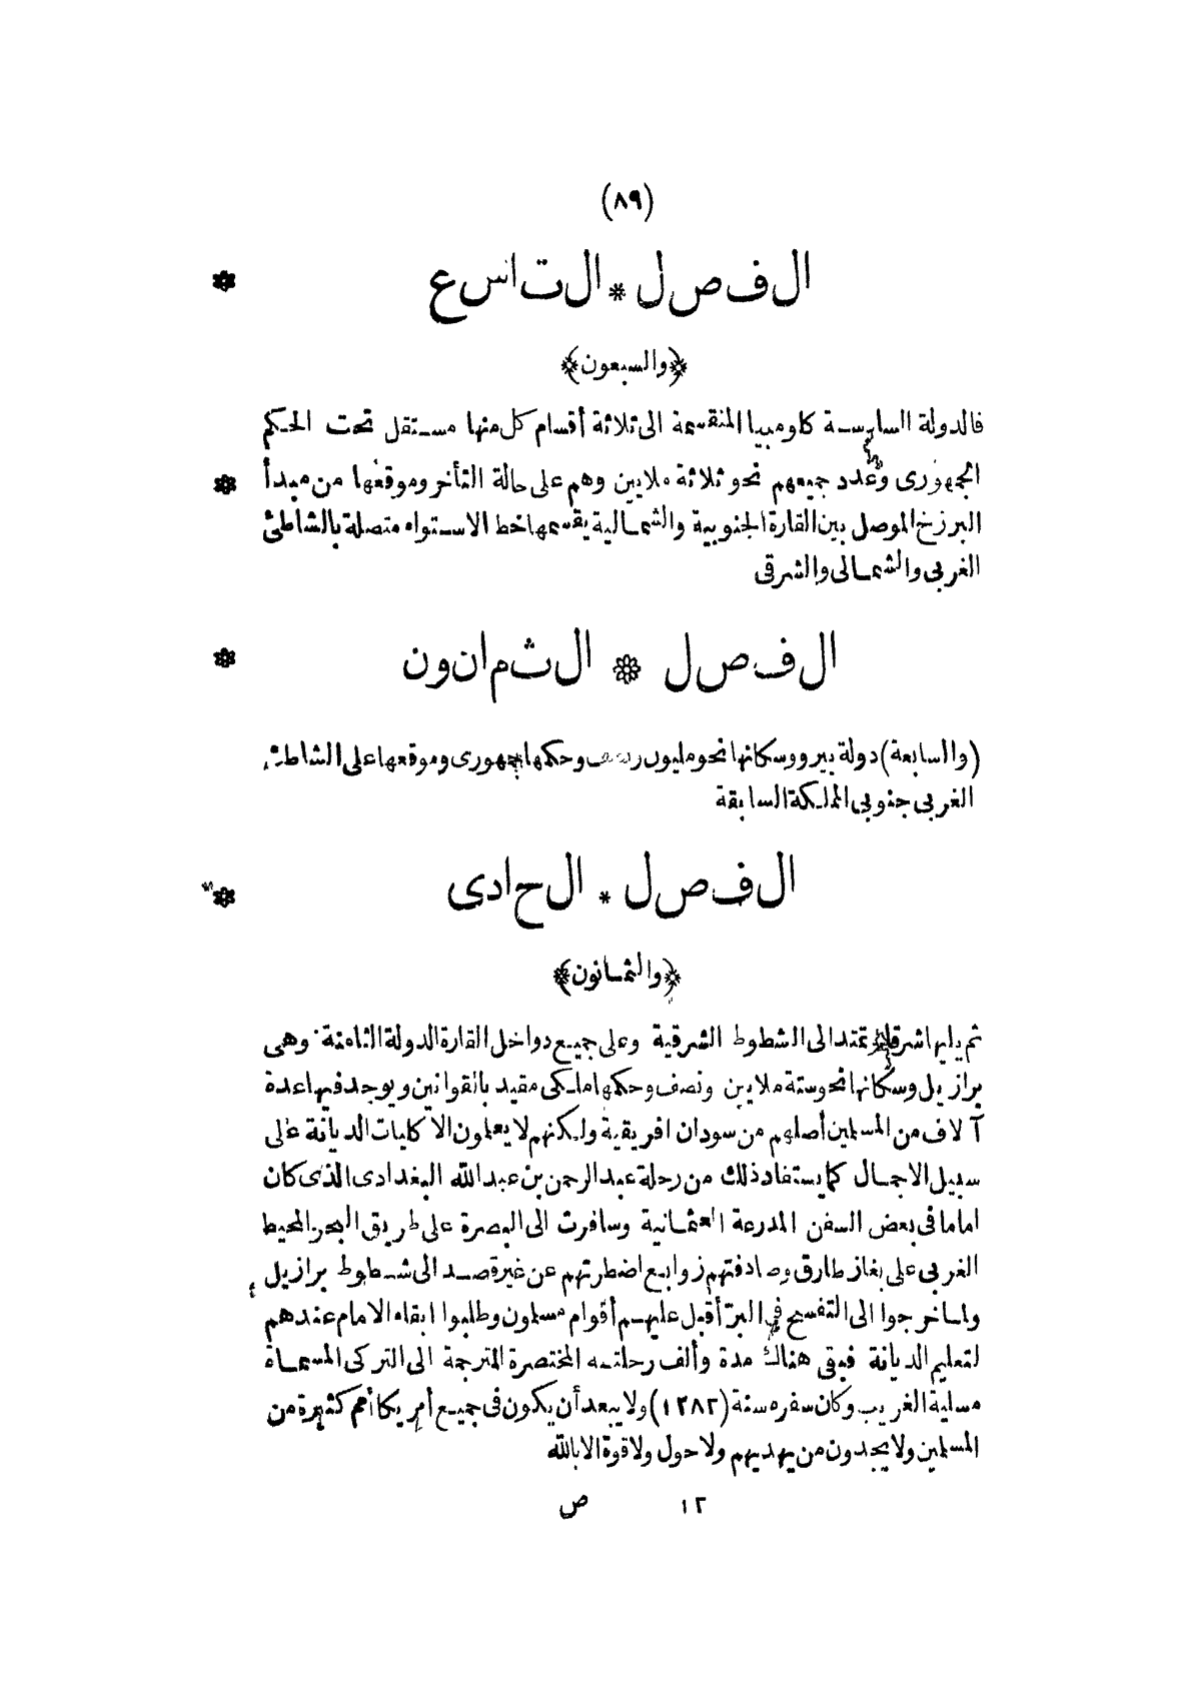 (٨٩)
الفصل * التاسع *
﴿والسبعون﴾
فالدولة السادسة كلومبيا المنقسمة الى ثلاثة أقسام كل منها مستقل تحت الحكم
الجمهورى وعدد جميعهم نحو ثلاثة ملايين وهم على حالة التأخر وموقعها من مبدأ *
البرزخ الموصل بين القارة الجنوبية والشمالية يقسمها خط الاستواء متصلة بالشاطئ
الغربى والشمالى والشرقى
الفصل * الثمانون *
(والسابعة) دولة بيرو وسكانها نحو مليون ونصف وحكمها جمهورى وموقعها على الشاطئ
الغربى جنوبى المملكة السابقة
الفصل * الحادى *
﴿والثمانون﴾
ثم يليها شرقا تمتد الى الشطوط الشرقية وعلى جميع دواخل القارة الدولة الثامنة وهى
برازيل وسكانها نحو ستة ملايين ونصف وحكمها ملكى مقيد بالقوانين ويوجد فيها عدة
آلاف من المسلمين أصلهم من سودان افريقية ولكنهم لا يعلمون الا كليات الديانة على
سبيل الاجمال كما يستفاد ذلك من رحلة عبد الرحمن بن عبد الله البغدادى الذى كان
اماما فى بعض السفن المدرعة العثمانية وسافرت الى البصرة على طريق البحر المحيط
الغربى على بغاز طارق وصادفتهم زوابع اضطرتهم عن غير قصد الى شطوط برازيل
ولما خرجوا الى التفسح فى البر أقبل عليهم أقوام مسلمون وطلبوا ابقاء الامام عندهم
لتعليم الديانة فبقى هناك مدة وألف رحلته المختصرة المترجمة الى التركى المسماة
مسلية الغريب وكان سفره سنة (١٢٨٢) ولا يبعد أن يكون فى جميع أمريكا أمم كثيرة من
المسلمين ولا يجدون من يهديهم ولا حول ولا قوة الا بالله
١٢ ص